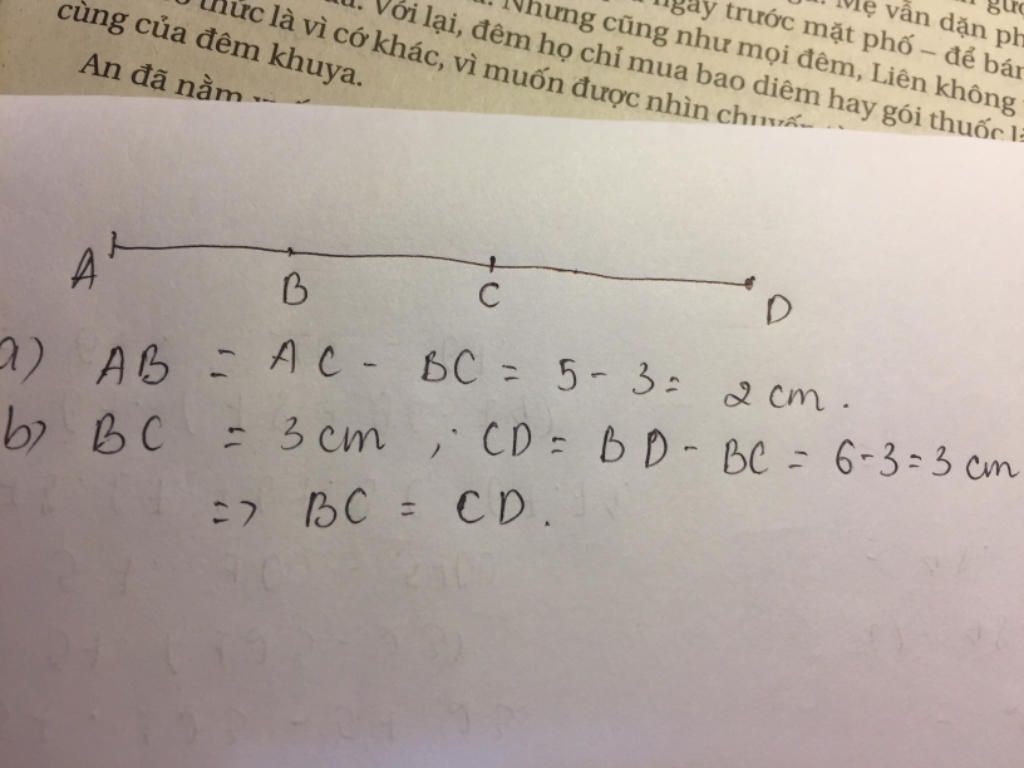 ngay trước mặt phố – để bán
Mẹ vẫn dặn
thức là vì cớ khác, vì muốn được nhìn chuyến
Với lại, đêm họ chỉ mua bao diêm hay gói thuốc
Nhưng cũng như mọi đêm, Liên không
cùng của đêm khuya.
An đã nằm
A B C D
a) AB = AC - BC = 5 - 3 = 2 cm.
b) BC = 3 cm ; CD = BD - BC = 6 - 3 = 3 cm
=> BC = CD.